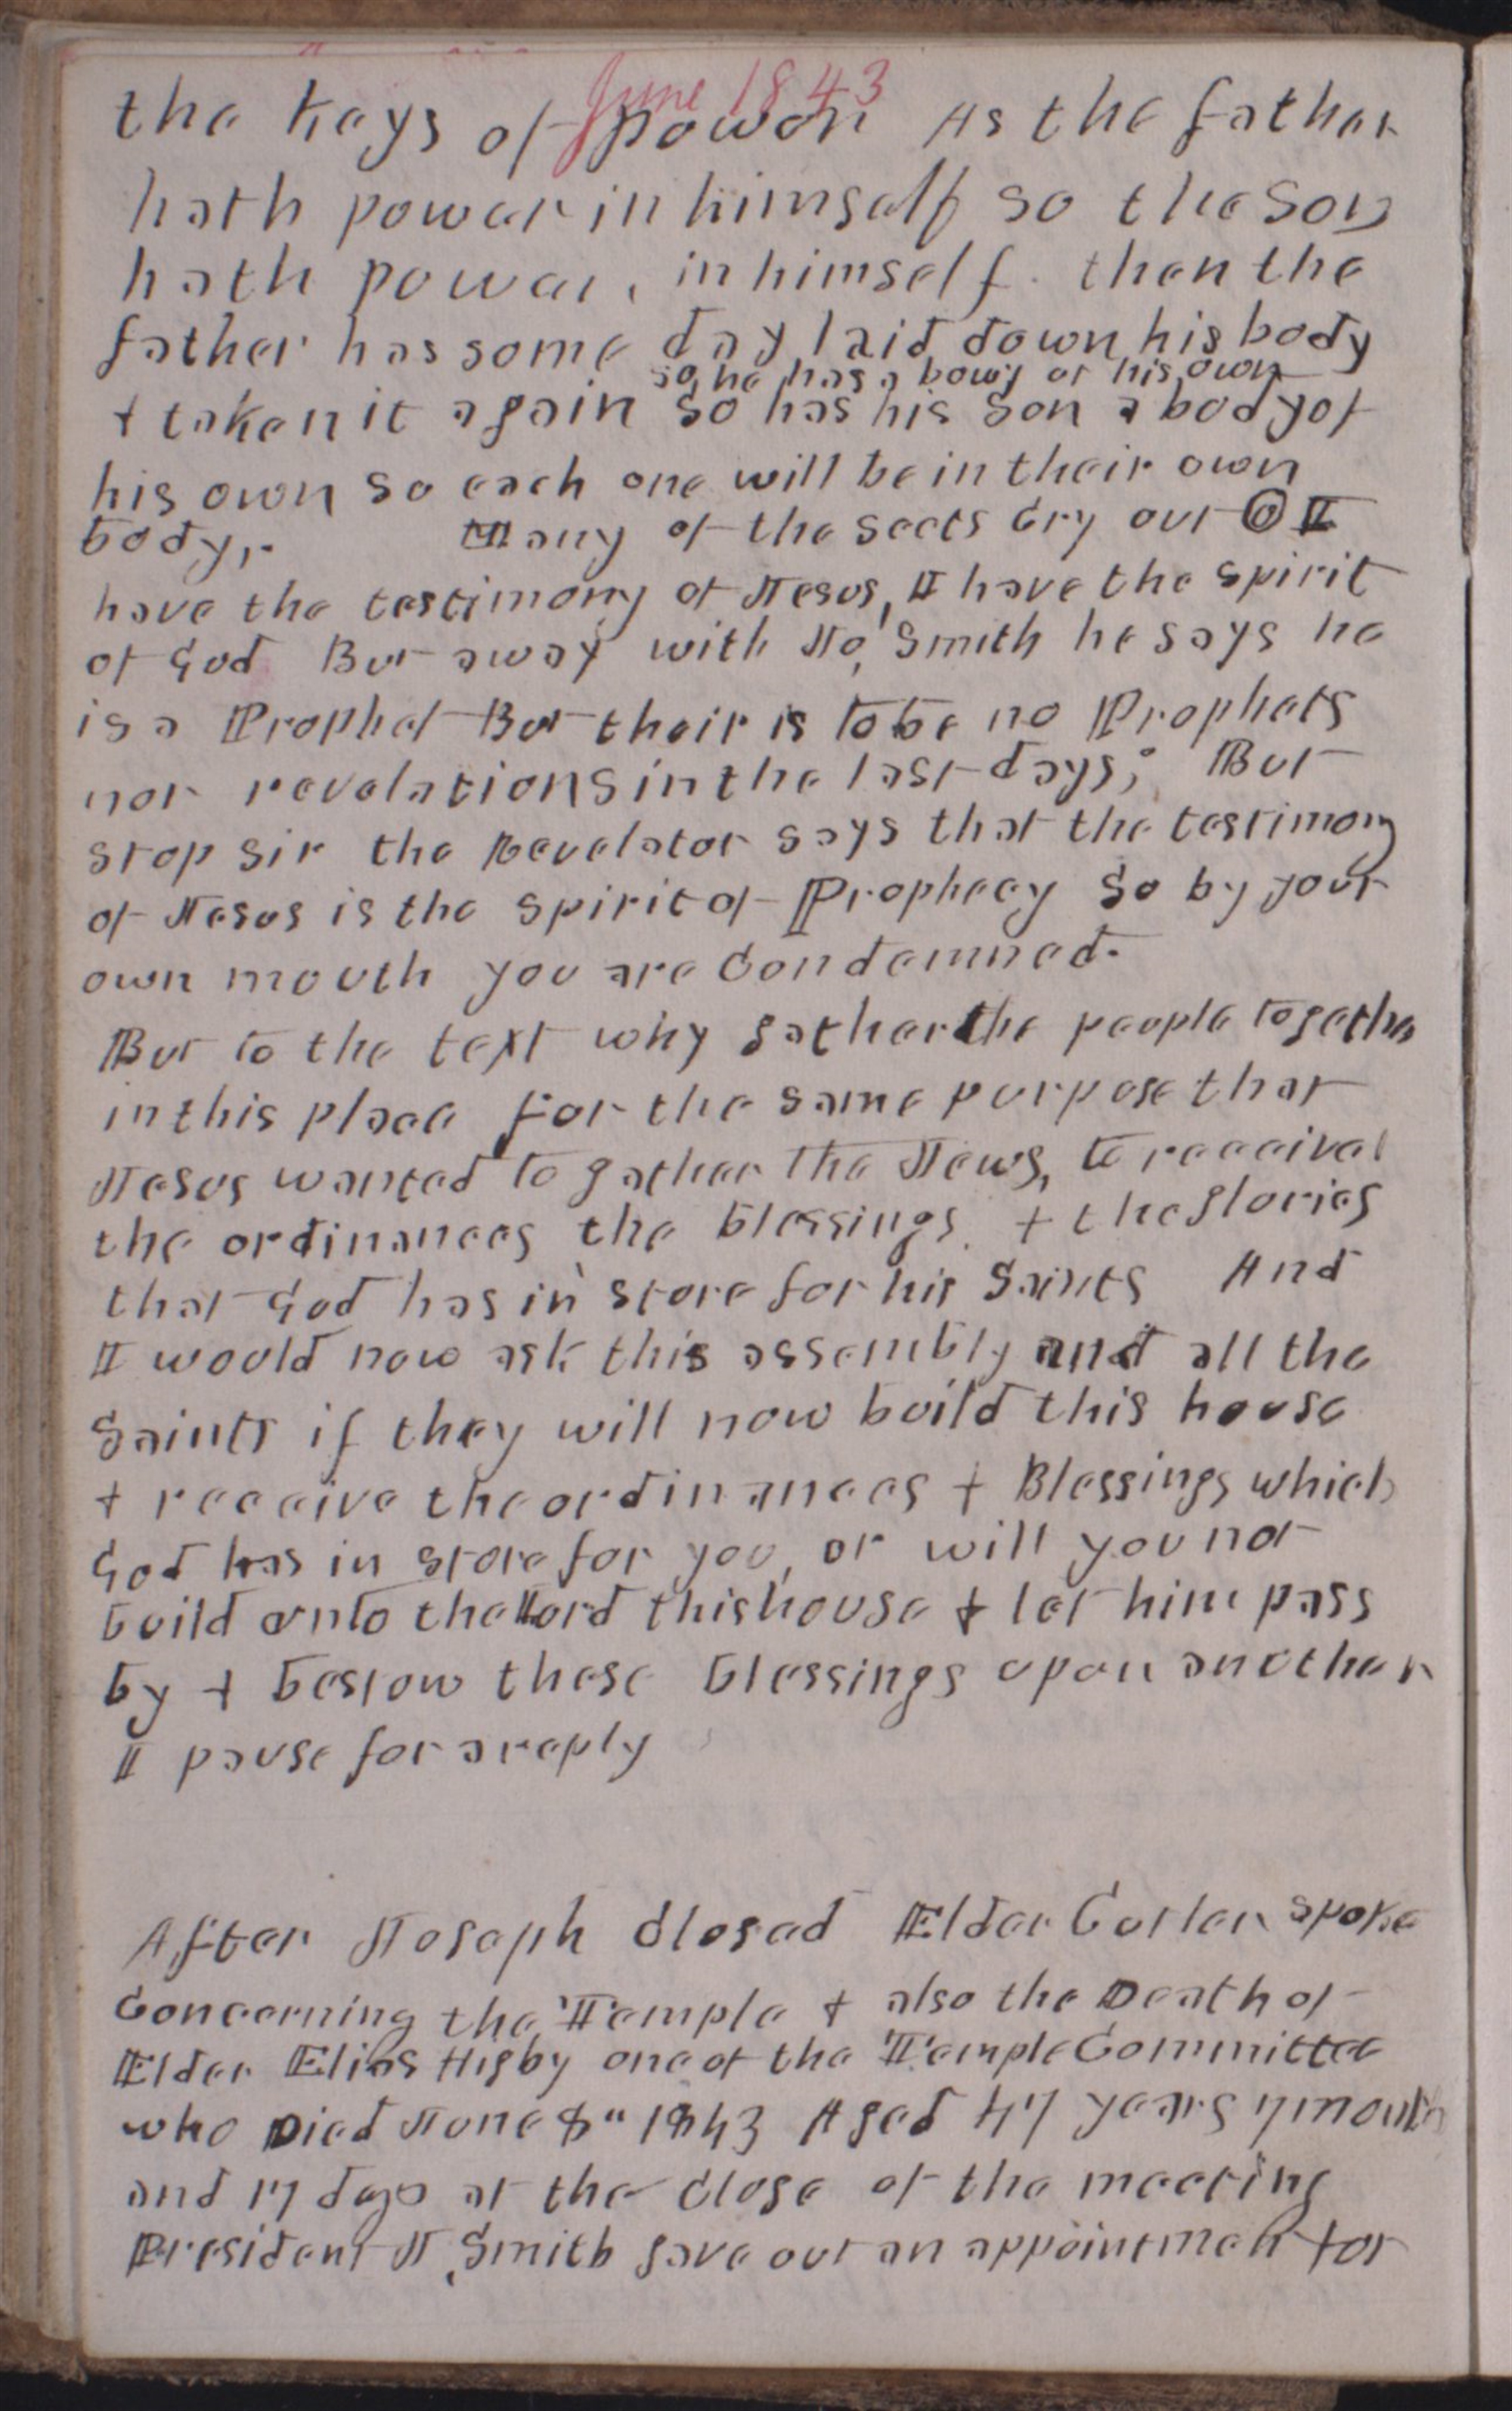 June 1843
the keys of power As the father
hath power in himself so the Son
hath power, in himself. then the
father has some day laid down his body
so he has a body of his own
+ taken it again so has his son a body of
his own so each one will be in their own
body,. Many of the sects Cry out O I
have the testimony of Jesus, I have the spirit
of God But away with Jo, Smith he says he
is a Prophet But their is to be no Prophets
nor revelations in the last days; But
stop sir the Revelator says that the testimony
of Jesus is the spirit of Prophecy So by your
own mouth you are Condemned.
But to the text why gather the people together
in this place for the same purpose that
Jesus wanted to gather the Jews, to receive
the ordinances the blessings + the glories
that God has in store for his Saints And
I would now ask this assembly and all the
Saints if they will now build this house
+ receive the ordinances + Blessings which
God has in store for you, or will you not
build unto the Lord this house + let him pass
by + bestow these blessings upon another
I pause for a reply
After Joseph Closed Elder Cutler spoke
Concerning the Temple + also the Death of
Elder Elias Higby one of the Temple Committee
who Died June 8" 1843 Aged 47 years 7 months
and 17 days at the Close of the meeting
President J, Smith gave out an appointment for